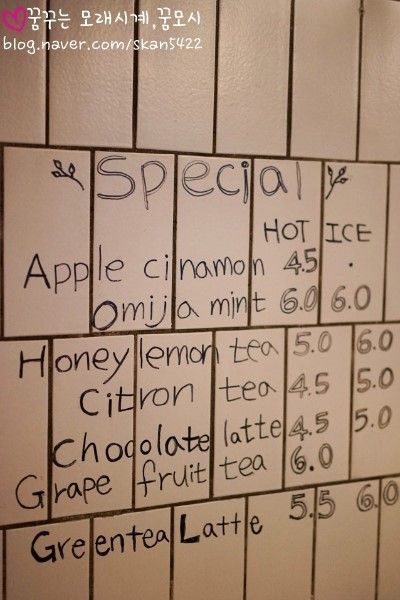 꿈꾸는 모래시계,꿈모시
blog.naver.com/skan5422
Special
HOT ICE
Apple cinamon 4.5 .
Omija mint 6.0 6.0
Honey lemon tea 5.0 6.0
Citron tea 4.5 5.0
Chocolate latte 4.5 5.0
Grape fruit tea 6.0
Greentea Latte 5.5 6.0